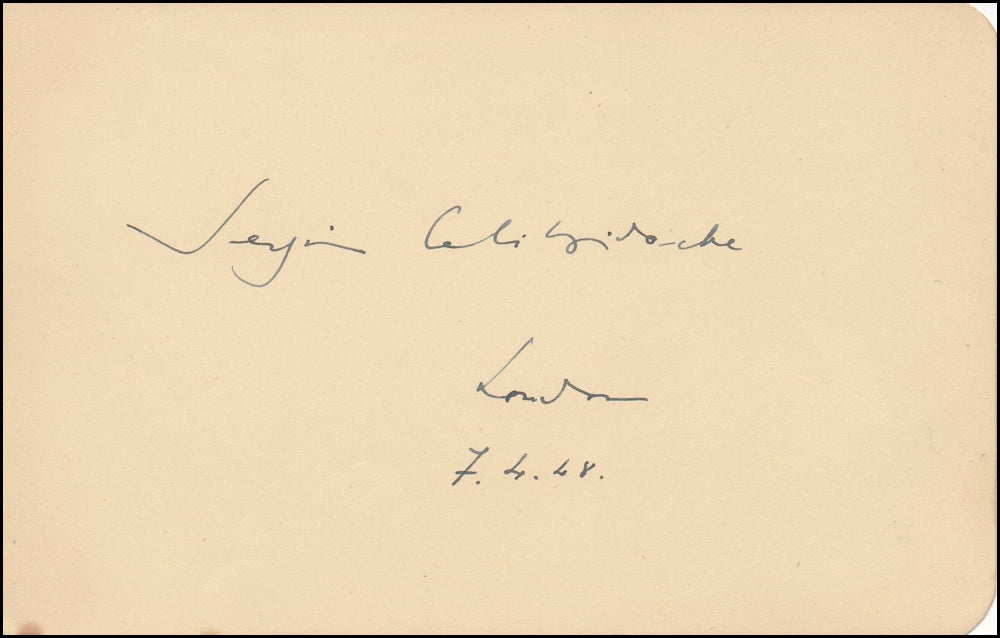 Sergiu Celibidache
London
7.4.48.